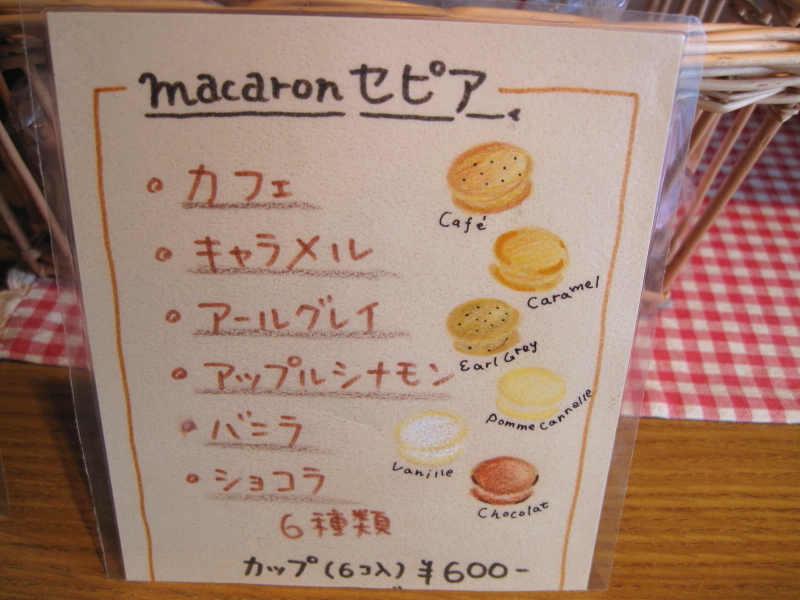 macaron セピア
・カフェ
Café
・キャラメル
Caramel
・アールグレイ
Earl Grey
・アップルシナモン
Pomme cannelle
・バニラ
Vanille
・ショコラ
Chocolat
6種類
カップ(6コ入)¥600-